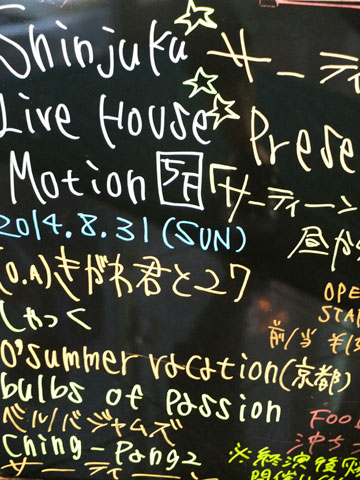 Shinjuku サーティ
Live House Prese
Motion 5F 「サーティーン
2014.8.31 (SUN) 昼か
(O.A) きがわ君と27
しゃっく OPE
STA
O'summer vacation (京都) 前/当 ¥1
bulbs of passion
ベルバジャムズ FOO
Ching-Pangz
サーティー ※終演後